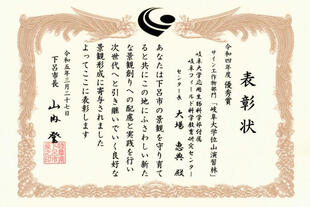 表彰状
令和四年度 優秀賞
サイン工作物部門 「岐阜大学位山演習林」
岐阜大学応用生物科学部附属
岐阜フィールド科学教育研究センター
センター長 大場 恵典 殿
あなたは下呂市の景観を守り育て
ると共にこの地にふさわしい新た
な景観創りへの配慮と実践を行い
次世代へと引き継いでいく良好な
景観形成に寄与されました
よってここに表彰します
令和五年三月二十七日
下呂市長 山内 登